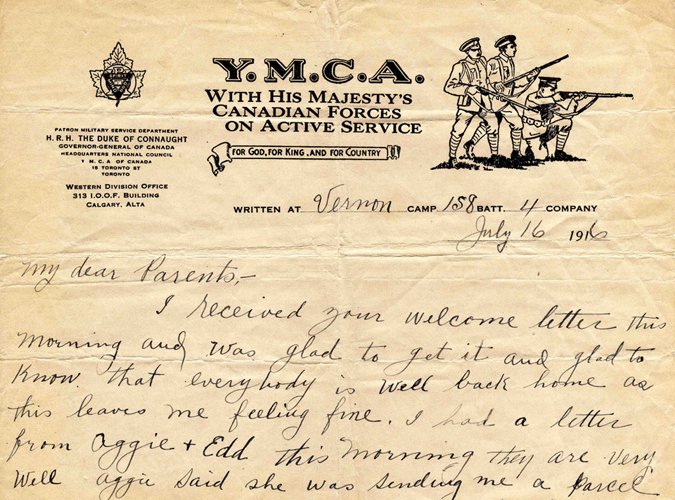 Y.M.C.A.
WITH HIS MAJESTY'S
CANADIAN FORCES
ON ACTIVE SERVICE
FOR GOD, FOR KING, AND FOR COUNTRY
PATRON MILITARY SERVICE DEPARTMENT
H. R. H. THE DUKE OF CONNAUGHT
GOVERNOR-GENERAL OF CANADA
HEADQUARTERS NATIONAL COUNCIL
Y M C A OF CANADA
15 TORONTO ST
TORONTO
WESTERN DIVISION OFFICE
313 I.O.O.F. BUILDING
CALGARY, ALTA
WRITTEN AT Vernon CAMP 158 BATT. 4 COMPANY
July 16 1916
My dear Parents,-
I received your welcome letter this
morning and was glad to get it and glad to
know that everybody is well back home as
this leaves me feeling fine. I had a letter
from Aggie + Edd this morning they are very
well aggie said she was sending me a parcel